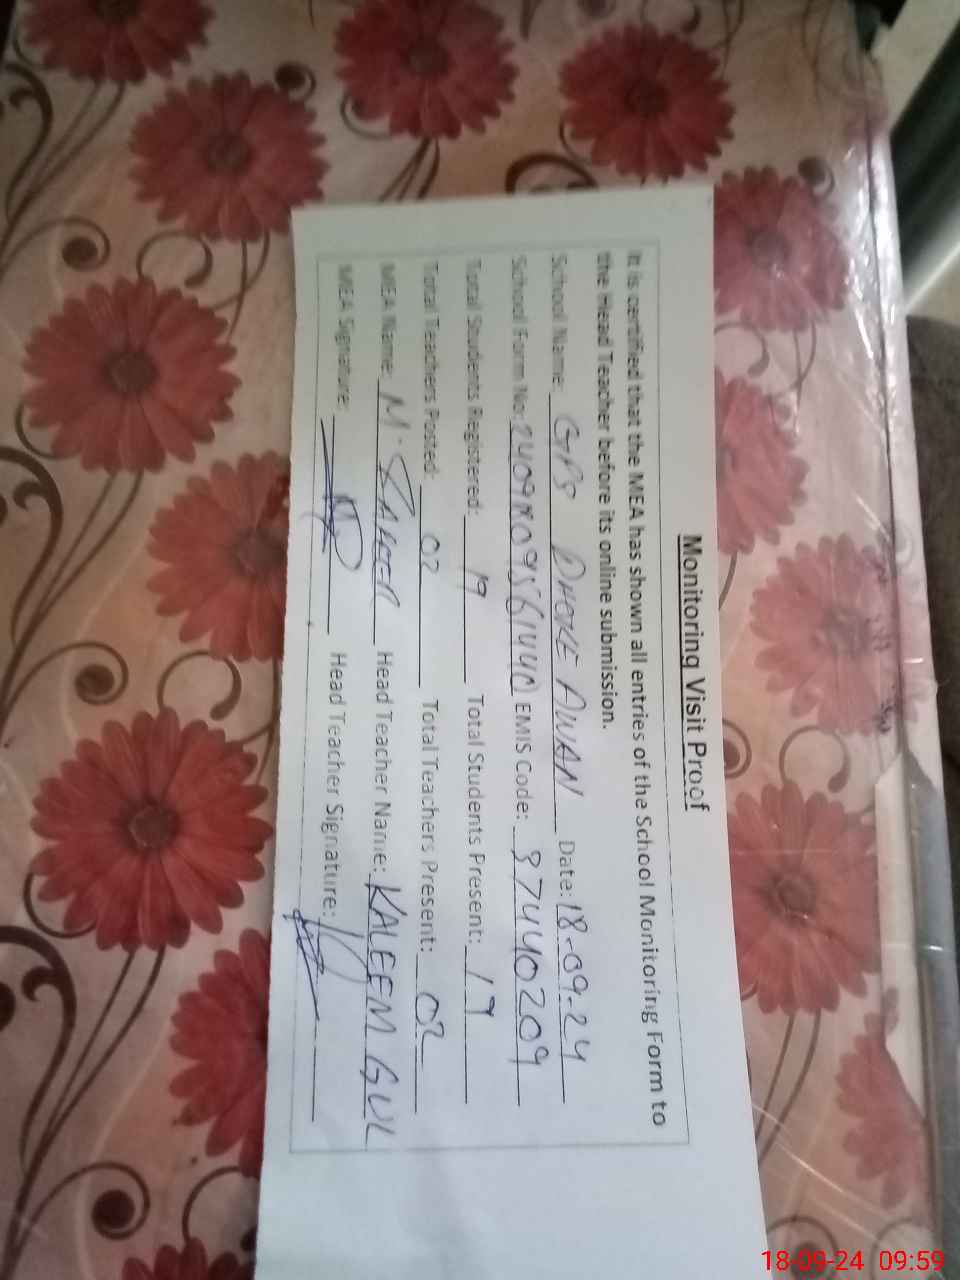 Monitoring Visit Proof
It is certified that the MEA has shown all entries of the School Monitoring Form to
the Head Teacher before its online submission.
School Name: GPS DHOKE AWAN Date: 18-09-24
School Form No: EMIS Code: 37440209
Total Students Registered: 19 Total Students Present: 19
Total Teachers Posted: 02 Total Teachers Present: 02
MEA Name: M. Head Teacher Name: KALEEM GUL
MEA Signature: Head Teacher Signature:
18-09-24 09:59